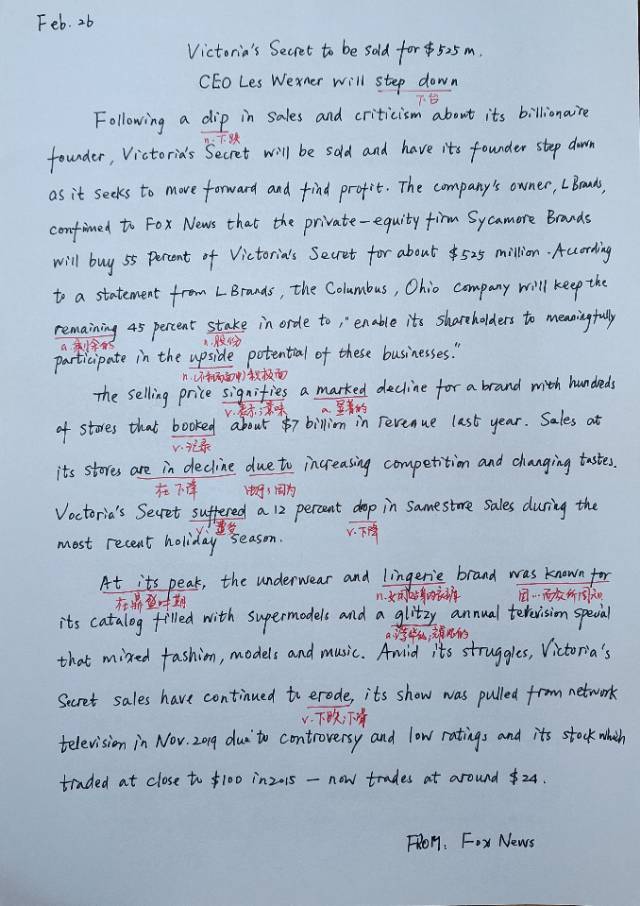 Feb. 26
Victoria's Secret to be sold for $525 m.
CEO Les Wexner will step down
下台
Following a dip in sales and criticism about its billionaire
n. 下跌
founder, Victoria's Secret will be sold and have its founder step down
as it seeks to move forward and find profit. The company's owner, L Brands,
confimed to Fox News that the private-equity firm Sycamore Brands
will buy 55 percent of Victoria's Secret for about $525 million. According
to a statement from L Brands, the Columbus, Ohio company will keep the
remaining 45 percent stake in orde to, "enable its shareholders to meaningfully
a. 剩余的 n. 股份
participate in the upside potential of these businesses."
n.
The selling price signifies a marked decline for a brand with hundreds
v. 表示;意味 a. 显著的
of stores that booked about $7 billion in revenue last year. Sales at
v. 记录
its stores are in decline due to increasing competition and changing tastes.
在下降 由于;因为
Voctoria's Secret suffered a 12 percent drop in samestore sales during the
v. 遭受 v. 下降
most recent holiday season.
At its peak, the underwear and lingerie brand was known for
在鼎盛时期 因…而众所周知
its catalog filled with supermodels and a glitzy annual television special
that mixed fashion, models and music. Amid its struggles, Victoria's
Secret sales have continued to erode, its show was pulled from network
v. 下跌;下降
television in Nov. 2019 due to controversy and low ratings and its stock which
traded at close to $100 in 2015 — now trades at around $24.
FROM: Fox News